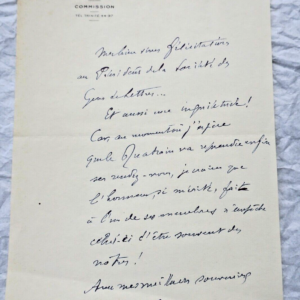 COMMISSION
Meilleures félicitations
au Président de la Société des
Gens de Lettres...
Et aussi une inquiétude!
Car, au moment où j'espère
que le Quatrain va reprendre enfin
ses rendez-vous, je crains que
l'honneur si mérité, fait
à l'un de ses membres n'empêche
celui-ci d'être souvent des
notres!
Avec mes meilleurs souvenirs